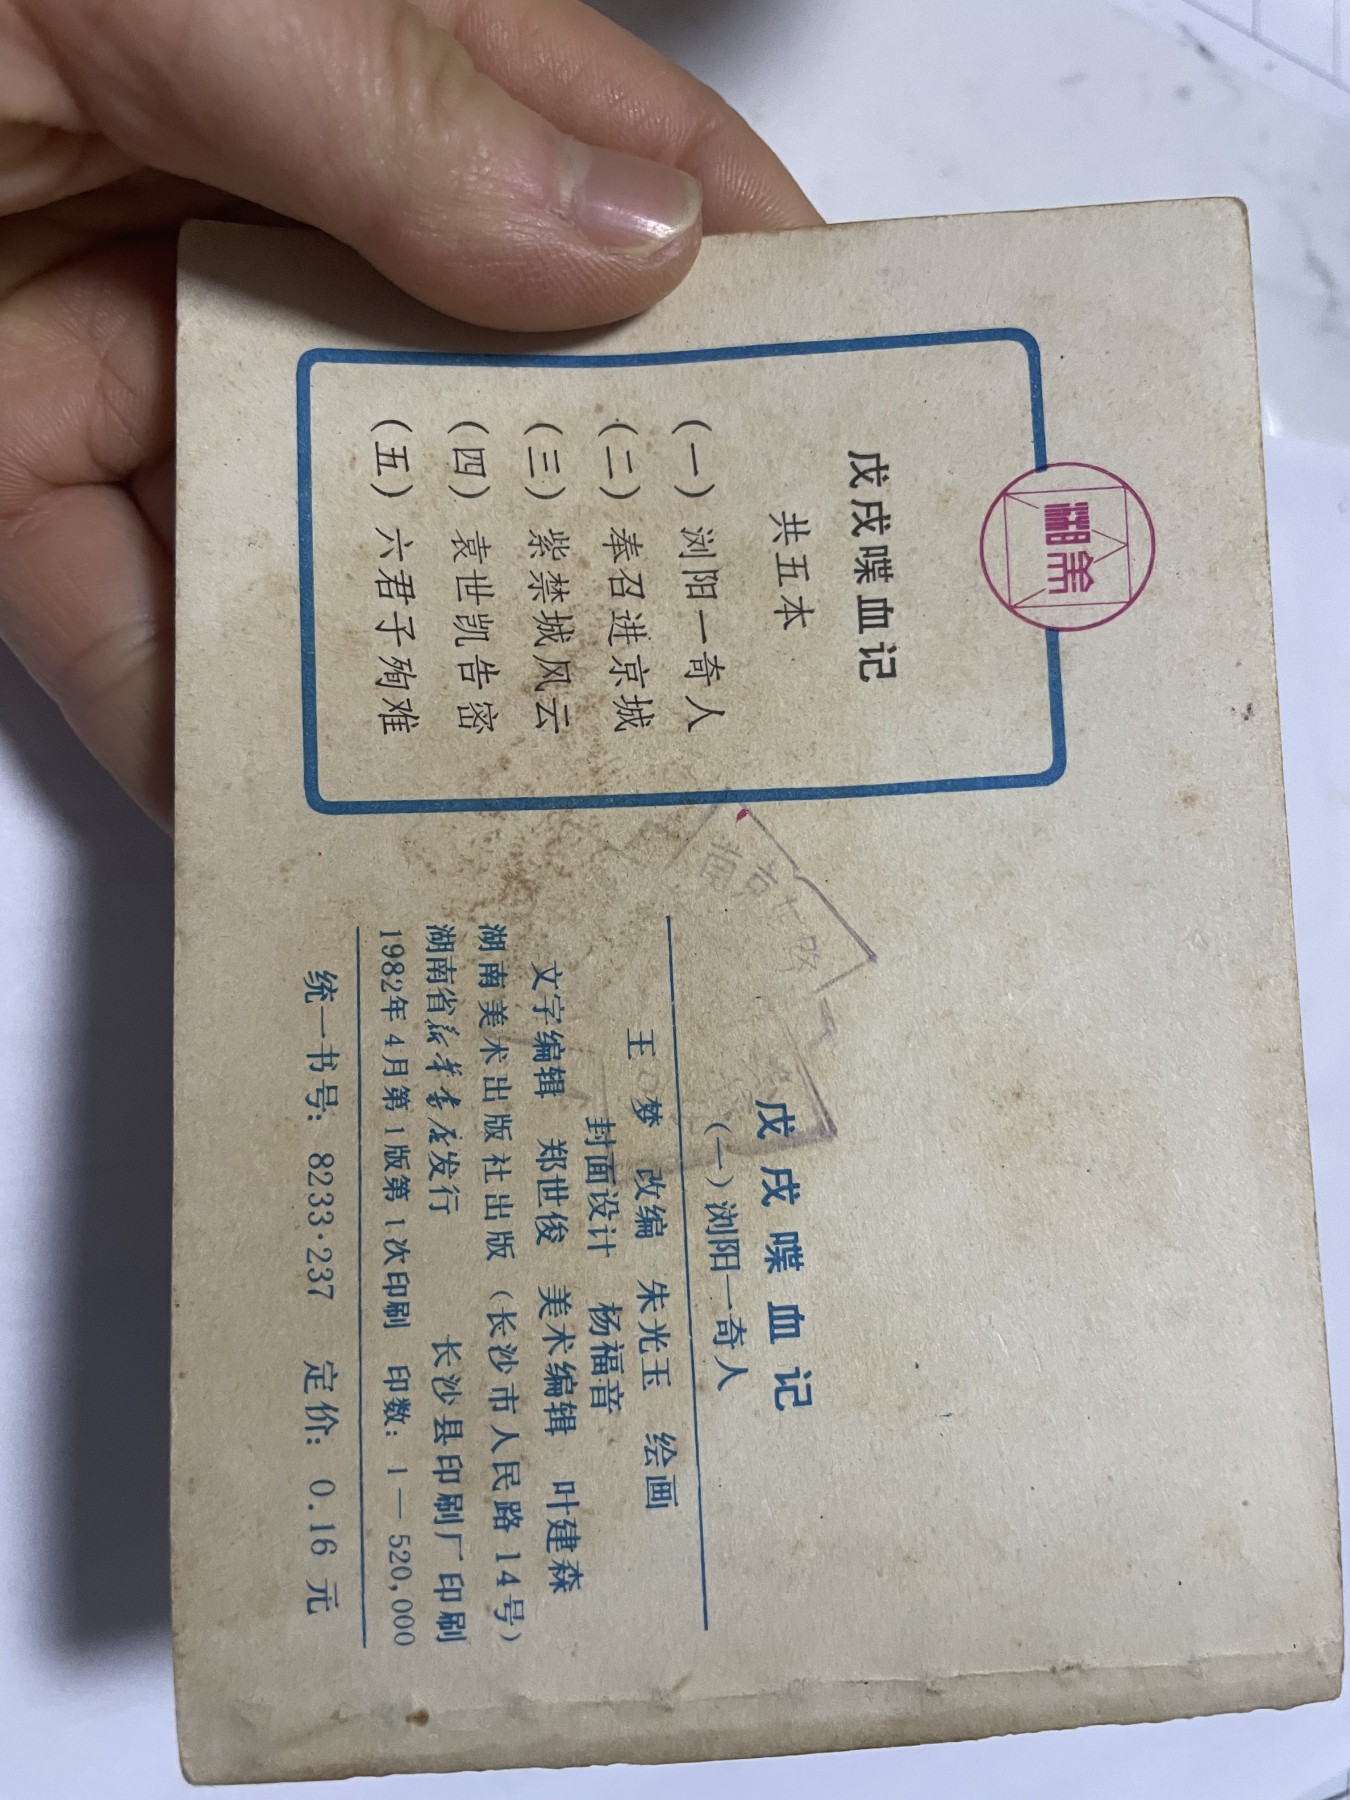 湘美
戊戌喋血记
共五本
(一) 浏阳一奇人
(二) 奉召进京城
(三) 紫禁城风云
(四) 袁世凯告密
(五) 六君子殉难
戊戌喋血记
(一)浏阳一奇人
王 梦 改编 朱光玉 绘画
封面设计 杨福音
文字编辑 郑世俊 美术编辑 叶建森
湖南美术出版社出版(长沙市人民路14号)
湖南省新华书店发行 长沙县印刷厂印刷
1982年4月第1版第1次印刷 印数: 1—520,000
统一书号: 8233·237 定价: 0.16 元